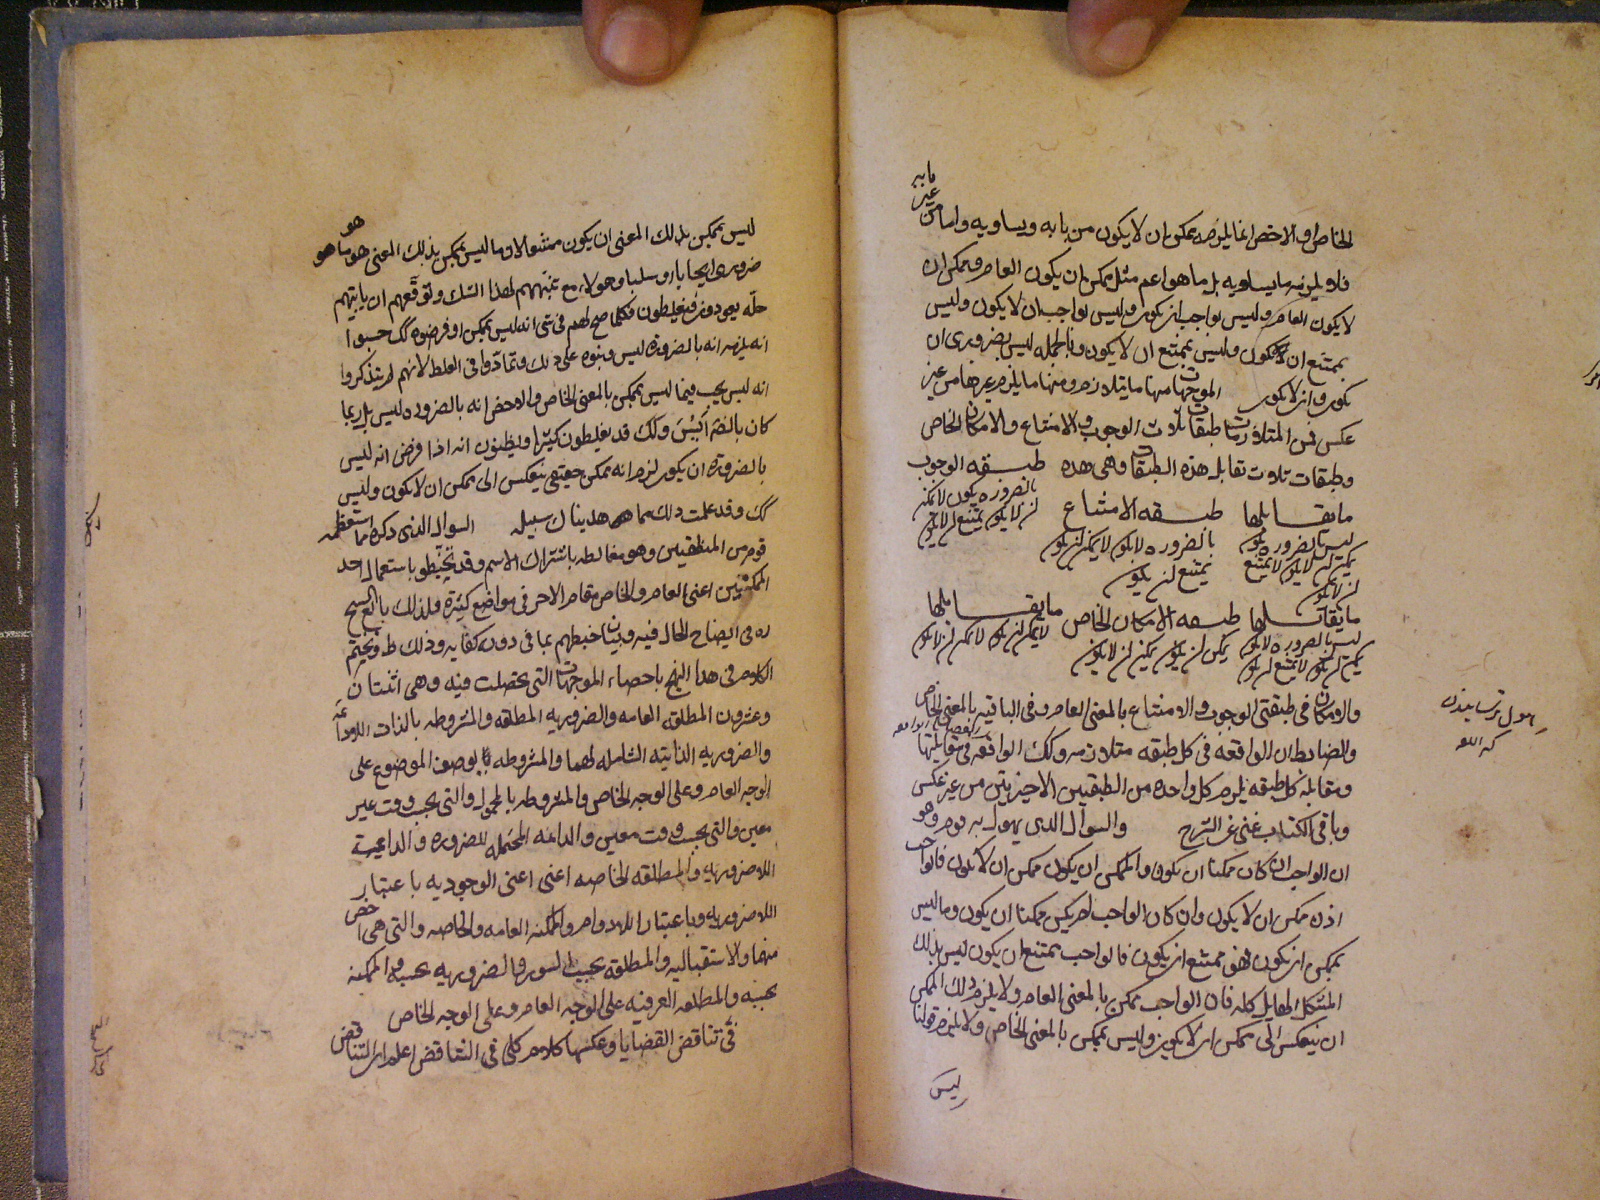 الخاص او الاخص انما يلزمه ممكن ان لا يكون من بابه ويساويه واما من غير بابه
فلا يلزمه ما يساويه بل ما هو اعم مثل ممكن ان يكون العام وممكن ان
لا يكون العام وليس بواجب ان يكون وليس بواجب ان لا يكون وليس
بممتنع ان يكون وليس بممتنع ان لا يكون وبالجمله ليس بضروري ان
يكون وان لا يكون الموجهات منها ما يتلازم ومنها ما يلزم غيرها من غير
عكس فمن المتلازمات طبقات ثلاث الوجوب والامتناع والامكان الخاص
وطبقات ثلاث تقابل هذه الطبقات وهى هذه طبقه الوجوب
بالضروره يكون لا يمكن
ان لا يكون يمتنع ان لا يكون
ما يقابلها طبقه الامتناع
ليس بالضروره يكون بالضروره لا يكون لا يمكن ان يكون
يمكن ان لا يكون لا يمتنع يمتنع ان يكون
ان لا يكون
ما يقابلها طبقه الامكان الخاص ما يقابلها
ليس بالضروره لا يكون يمكن ان يكون يمكن ان لا يكون لا يمكن ان يكون لا يمكن ان لا يكون
يمكن ان يكون لا يمتنع ان يكون
والامكان في طبقتي الوجوب والامتناع بالمعنى العام وفي الباقيه بالمعنى الخاص
والضابط ان الواقعه في كل طبقه متلازمه وكذلك الواقعه في مقابلتها
ومقابله كل طبقه يلزم كل واحده من الطبقتين الاخيرتين من غير عكس
وباقي الكتاب غني عن الشرح والسوال الذى يهول به قوم وهو
ان الواجب ان كان ممكنا ان يكون والممكن ان يكون ممكن ان لا يكون فالواجب
اذن ممكن ان لا يكون وان كان الواجب لم يكن ممكنا ان يكون وما ليس
بممكن ان يكون فهو ممتنع ان يكون فالواجب ممتنع ان يكون ليس بذلك
المشكل الهايل كله فان الواجب ممكن بالمعنى العام ولا يلزم ذلك الممكن
ان ينعكس الى ممكن ان لا يكون وليس بممكن بالمعنى الخاص ولا يلزم قولنا
ليس
ليس بممكن بذلك المعنى ان يكون ممتنعا لان ما ليس بممكن بذلك المعنى هو ما هو
ضروري ايجابا او سلبا وهولاء مع تنبههم لهذا الشك وتوقعهم ان ياتيهم
حله يعودون فيغلطون فكلما صح لهم في شى انه ليس بممكن او فرضوه كك حسبوا
انه يلزمه انه بالضروره ليس وبنوه على ذلك وتمادوا في الغلط لانهم لم يتذكروا
انه ليس يجب فيما ليس بممكن بالمعنى الخاص والاخص انه بالضروره ليس بل ربما
كان بالضروره أيس وكك قد يغلطون كثيرا ويظنون انه اذا فرض انه ليس
بالضروره ان يكون لزم انه ممكن حقيقى ينعكس الى ممكن ان لا يكون وليس
كك وقد علمت ذلك مما هديناك سبيله السوال الذى ذكره مما استعظمه
قوم من المنطقيين وهو مغالطه باشتراك الاسم وقد تخبطوا باستعمال احد
الممكنين اعنى العام والخاص مقام الاخر في مواضع كثيرة ولذلك بالغ الشيخ
في ايضاح الحال فيه وبيان خبطهم بما في دونه كفايه وذلك ظ ونختم
الكلام في هذا النهج باحصاء الموجهات التي تحصلت فيه وهى اثنتان
وعشرون المطلقه العامه والضروريه المطلقه والمشروطه بالذات اللادائمه
والضروريه الذاتيه الشامله لهما والمشروطه بالوصف الموضوع على
الوجه العام وعلى الوجه الخاص والمشروطه بالمحمول والتى بحسب وقت غير
معين والتى بحسب وقت معين والدائمه المحتمله للضروره والدائمه
اللاضروريه والمطلقه الخاصه اعنى اعنى الوجوديه باعتبار
اللاضروريه وباعتبار اللادوام والممكنه العامه والخاصه والتى هى اخص
منهما والاستقباليه والمطلقه بحسب السور والضروريه بحسبه والممكنه
بحسبه والمطلقه العرفيه على الوجه العام وعلى الوجه الخاص
في تناقض القضايا وعكسها كلام كلى في التناقض اعلم ان التناقض